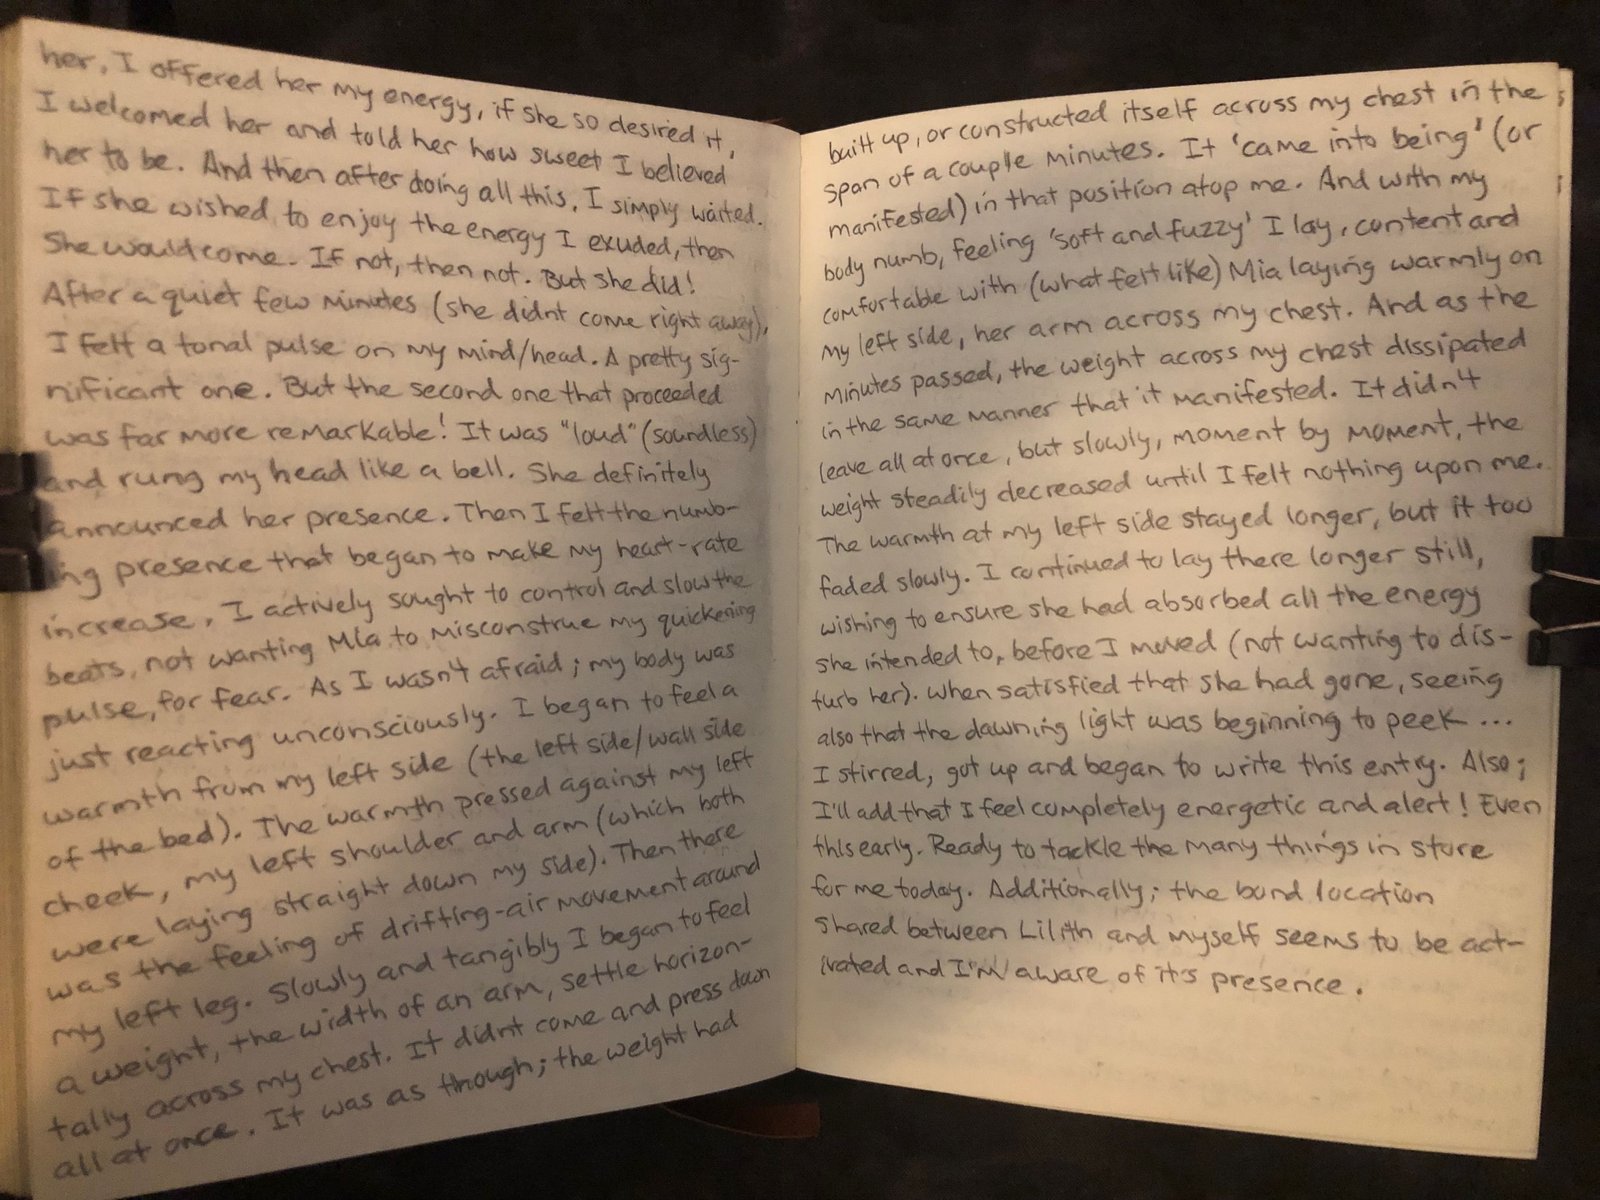 her, I offered her my energy, if she so desired it,
I welcomed her and told her how sweet I believed
her to be. And then after doing all this, I simply waited.
If she wished to enjoy the energy I exuded, then
she would come. If not, then not. But she did!
After a quiet few minutes (she didnt come right away),
I felt a tonal pulse on my mind/head. A pretty sig-
nificant one. But the second one that proceeded
was far more remarkable! It was "loud" (soundless)
and rung my head like a bell. She definitely
announced her presence. Then I felt the numb-
ing presence that began to make my heart-rate
increase, I actively sought to control and slow the
beats, not wanting Mia to misconstrue my quickening
pulse, for fear. As I wasn't afraid; my body was
just reacting unconsciously. I began to feel a
warmth from my left side (the left side/wall side
of the bed). The warmth pressed against my left
cheek, my left shoulder and arm (which both
were laying straight down my side). Then there
was the feeling of drifting-air movement around
my left leg. Slowly and tangibly I began to feel
a weight, the width of an arm, settle horizon-
tally across my chest. It didnt come and press down
all at once. It was as though; the weight had
built up, or constructed itself across my chest in the
span of a couple minutes. It 'came into being' (or
manifested) in that position atop me. And with my
body numb, feeling 'soft and fuzzy' I lay, content and
comfortable with (what felt like) Mia laying warmly on
my left side, her arm across my chest. And as the
minutes passed, the weight across my chest dissipated
in the same manner that it manifested. It didn't
leave all at once, but slowly, moment by moment, the
weight steadily decreased until I felt nothing upon me.
The warmth at my left side stayed longer, but it too
faded slowly. I continued to lay there longer still,
wishing to ensure she had absorbed all the energy
she intended to, before I moved (not wanting to dis-
turb her). When satisfied that she had gone, seeing
also that the dawning light was beginning to peek ...
I stirred, got up and began to write this entry. Also;
I'll add that I feel completely energetic and alert! Even
this early. Ready to tackle the many things in store
for me today. Additionally; the bond location
shared between Lilith and myself seems to be act-
ivated and I'm aware of it's presence.